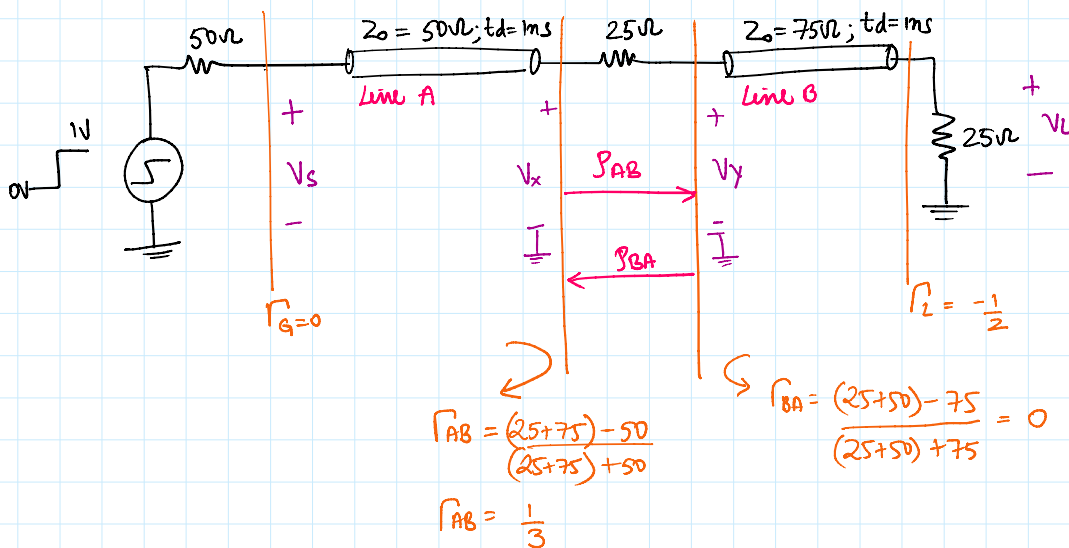 50Ω
Z₀ = 50Ω; td = 1ms
25Ω
Z₀ = 75Ω; td = 1ms
Line A
Line B
1V
0V
+
Vs
−
+
Vx
ρAB
+
Vy
−
ρBA
25Ω
+
VL
−
ΓG=0
ΓL = -1/2
ΓAB = (25+75)-50 / (25+75)+50
ΓBA = (25+50)-75 / (25+50)+75 = 0
ΓAB = 1/3